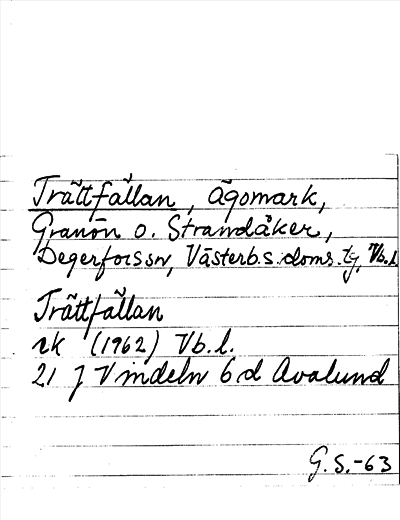 Trättfällan, ägomark,
Granön o. Strandåker,
Degerforssn, Västerb.s. doms.tg, Vb.l.
Trättfällan
rk (1962) Vb.l.
21 J Vindeln 6 d Avalund
G.S.-63